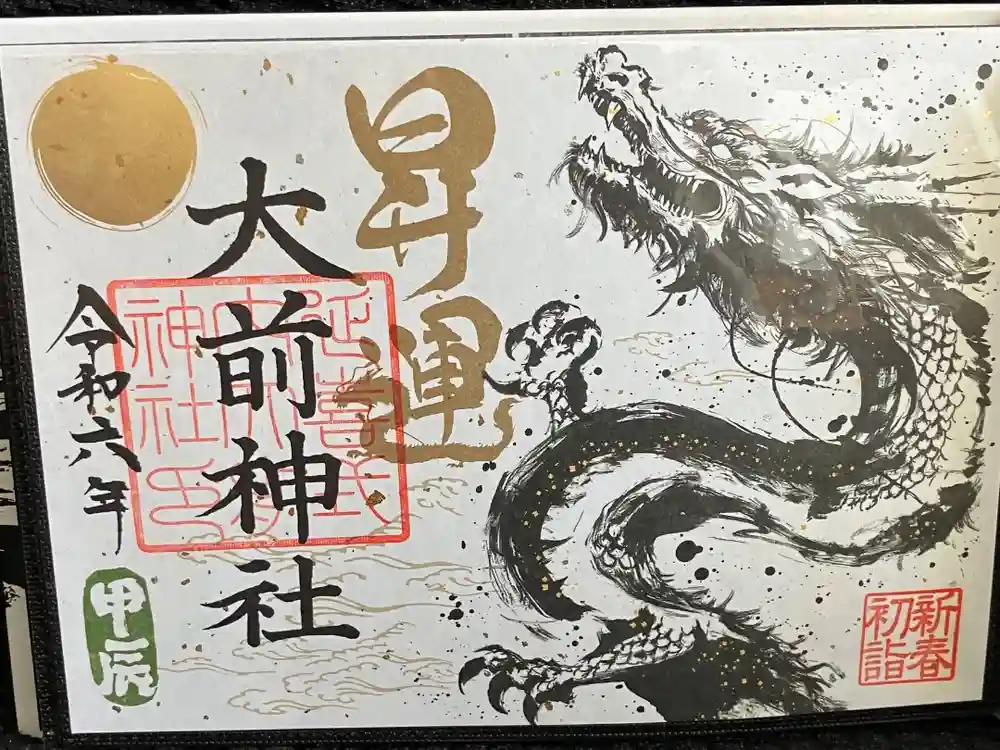 昇運
大前神社
延喜式内大前神社印
令和六年
甲辰
新春
初詣